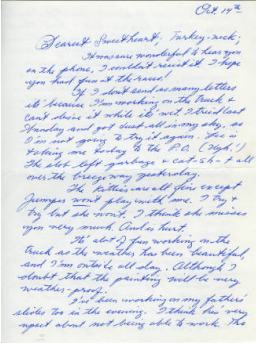 Oct. 14th
Dearest Sweetheart, Turkey-neck;
It was sure wonderful to hear you
on the phone, I couldn't resist it. I hope
you had fun at the races!
If I don't send as many letters
it's because I'm working on the truck &
can't drive it while it's wet. I tried last
Monday and got dust all in my sky, so
I'm not going to try it again. Joe is
taking me today to the P.O. (Ugh!)
The dog left garbage & cat-sh- + all
over the breezeway yesterday.
The Kitties are all fine except
Jumper won't play with me. I try &
try but she won't. I think she misses
you very much. And is hurt.
It's a lot of fun working on the
truck as the weather has been beautiful,
and I'm outside all day. Although I
doubt that the painting will be very
weather-proof.
I've been working on my father's
slides too in the evening. I think he's very
upset about not being able to work. The